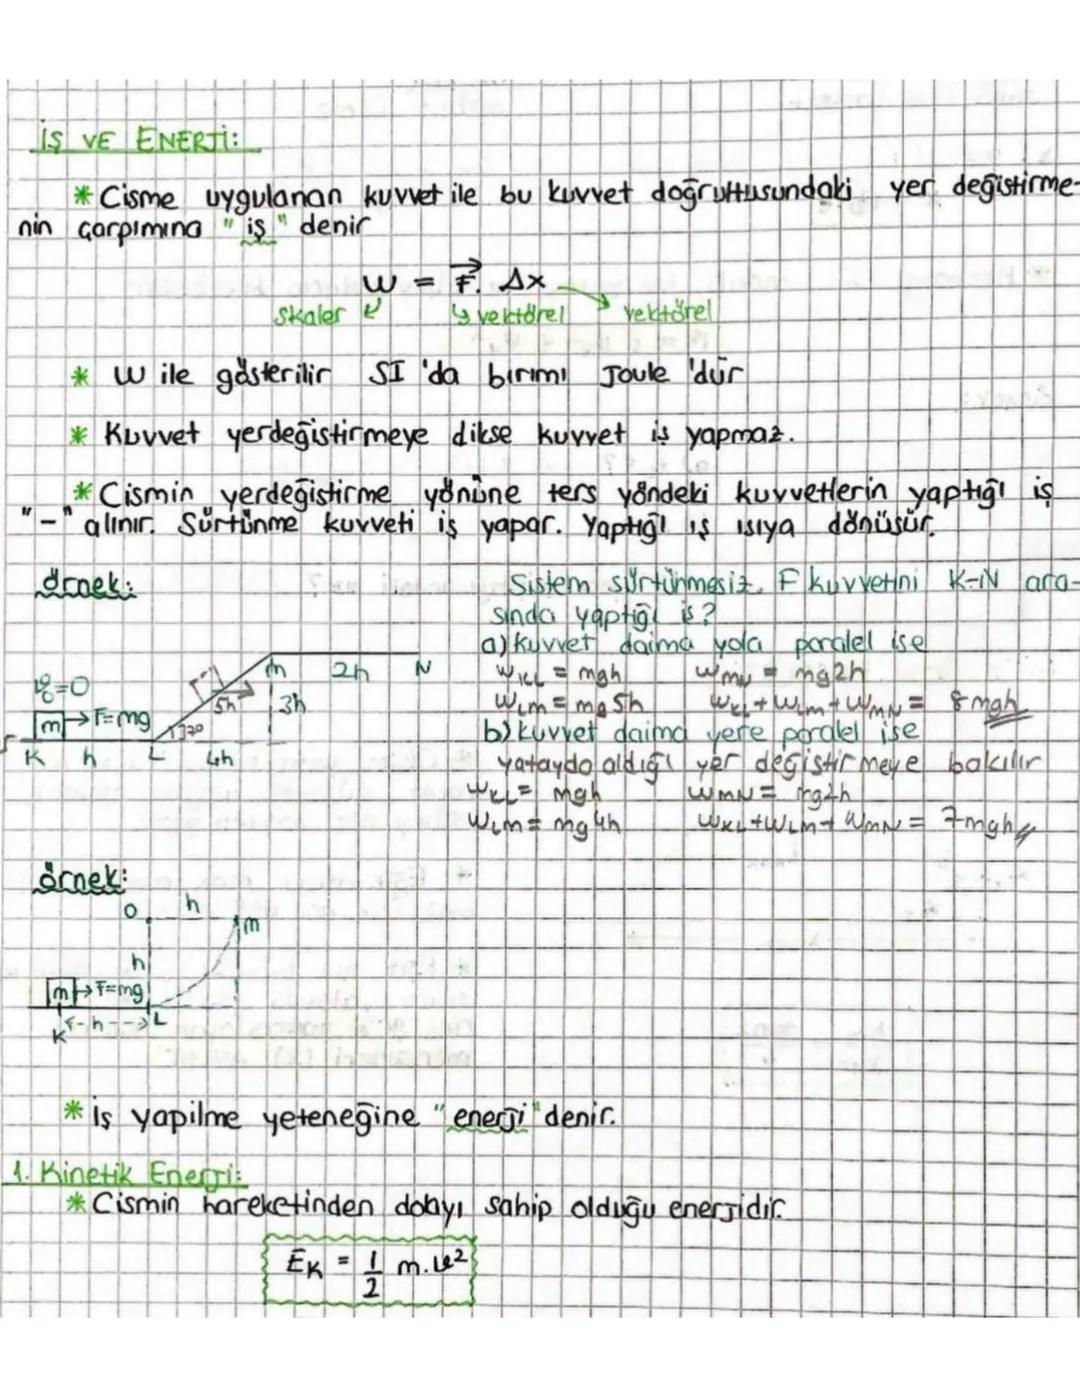 İŞ VE ENERJİ:
* Cisme uygulanan kuvvet ile bu kuvvet doğrultusundaki yer değiştirme-
nin çarpımına "iş" denir
W = F. Δx
Skaler vektörel vektörel
* W ile gösterilir SI 'da birimi Joule 'dür
* Kuvvet yerdeğiştirmeye dikse kuvvet iş yapmaz.
* Cismin yerdeğiştirme yönüne ters yöndeki kuvvetlerin yaptığı iş
"-" alınır. Sürtünme kuvveti iş yapar. Yaptığı iş ısıya dönüşür.
örnek:
Sistem sürtünmesiz. F kuvvetini K-N ara-
sında yaptığı iş?
a) kuvvet daima yola paralel ise
WKL = mgh WMN = mg2h
WLM = mg5h WKL + WLM + WMN = 8mgh
b) kuvvet daima yere paralel ise
yatayda aldığı yer değiştirmeye bakılır
WKL = mgh WMN = mg2h
WLM = mg4h WKL + WLM + WMN = 7mgh
m 2h N
V0=0 5h 3h
m F=mg 37°
K h L 4h
örnek:
O h m
h
m F=mg
K h L
* iş yapılme yeteneğine "enerji" denir.
1. Kinetik Enerji:
* Cismin hareketinden dolayı sahip olduğu enerjidir.
EK = 1/2 m.v²